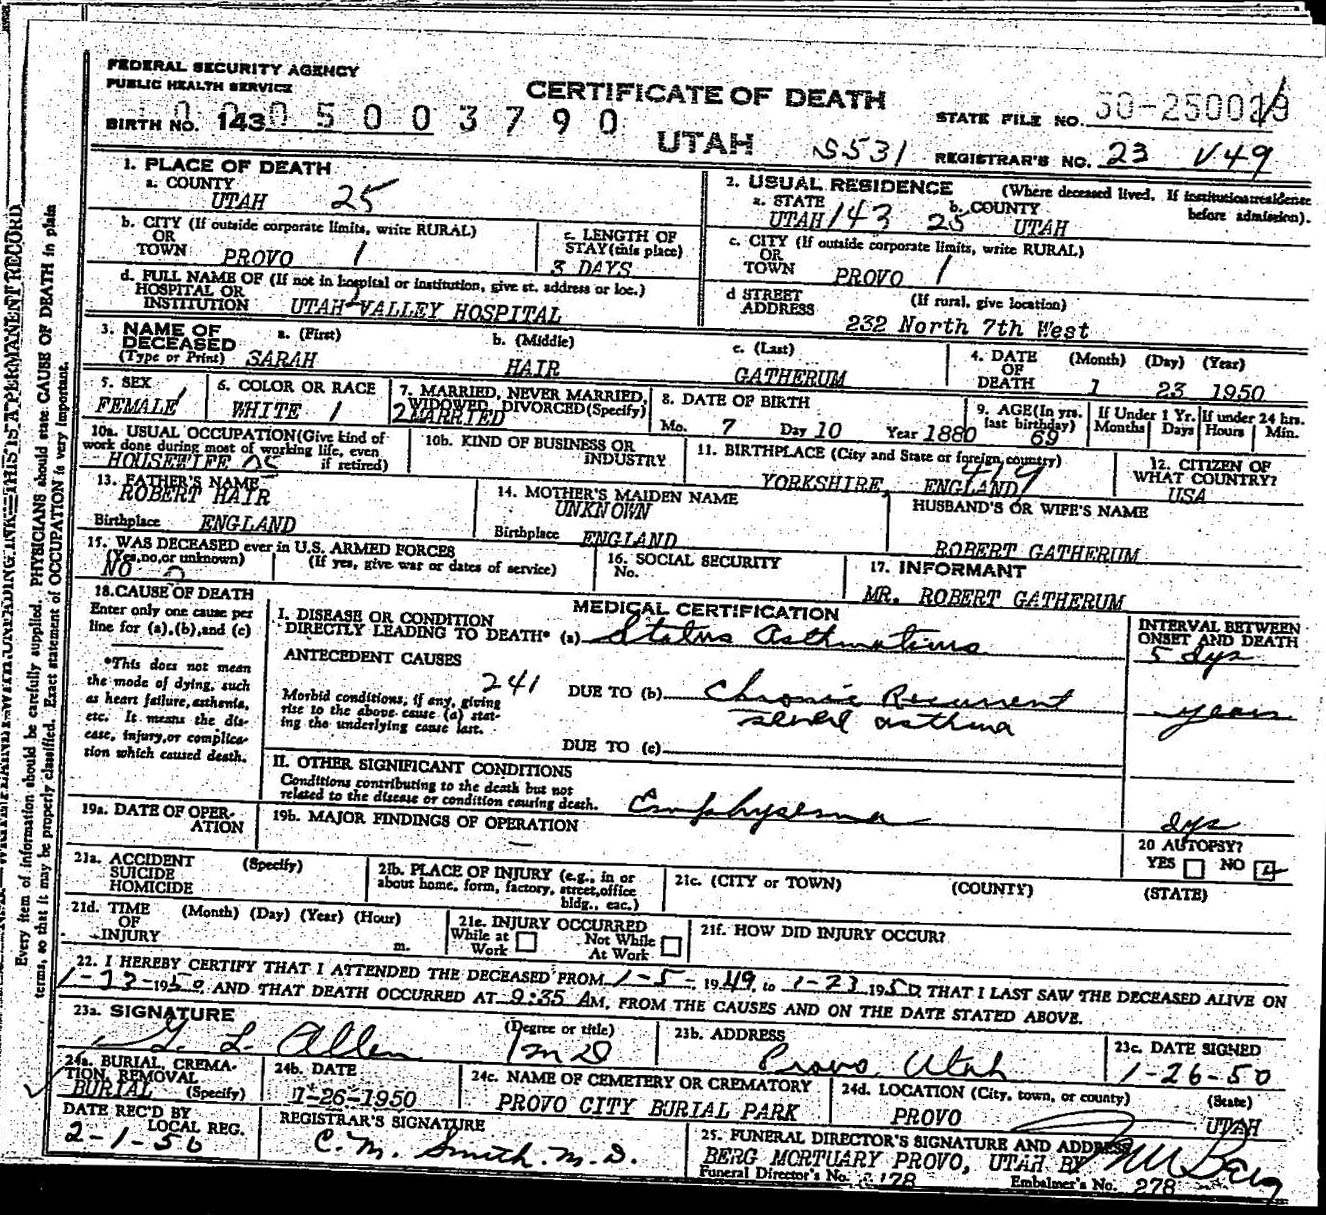 FEDERAL SECURITY AGENCY
PUBLIC HEALTH SERVICE
CERTIFICATE OF DEATH
UTAH
BIRTH NO. 143
05003790
STATE FILE NO.
S531 REGISTRAR'S NO. 23 V49
1. PLACE OF DEATH
a. COUNTY
UTAH 25
b. CITY (If outside corporate limits, write RURAL)
OR
TOWN PROVO 1
c. LENGTH OF
STAY (this place)
3 DAYS
d. FULL NAME OF (If not in hospital or institution, give st. address or loc.)
HOSPITAL OR
INSTITUTION UTAH VALLEY HOSPITAL
2. USUAL RESIDENCE (Where deceased lived. If institution:residence
before admission).
a. STATE b. COUNTY
UTAH 143 25 UTAH
c. CITY (If outside corporate limits, write RURAL)
OR
TOWN PROVO 1
d STREET (If rural, give location)
ADDRESS
232 North 7th West
3. NAME OF DECEASED
(Type or Print)
a. (First) b. (Middle) c. (Last)
SARAH HAIR GATHERUM
4. DATE OF DEATH (Month) (Day) (Year)
1 23 1950
5. SEX
FEMALE 1
6. COLOR OR RACE
WHITE 1
7. MARRIED, NEVER MARRIED,
WIDOWED, DIVORCED (Specify)
2 MARRIED
8. DATE OF BIRTH
Mo. 7 Day 10 Year 1880
9. AGE (In yrs.
last birthday)
69
If Under 1 Yr. If under 24 hrs.
Months Days Hours Min.
10a. USUAL OCCUPATION (Give kind of
work done during most of working life, even
if retired)
HOUSEWIFE
10b. KIND OF BUSINESS OR
INDUSTRY
11. BIRTHPLACE (City and State or foreign country)
YORKSHIRE, ENGLAND
12. CITIZEN OF
WHAT COUNTRY?
USA
13. FATHER'S NAME
ROBERT HAIR
Birthplace ENGLAND
14. MOTHER'S MAIDEN NAME
UNKNOWN
Birthplace ENGLAND
HUSBAND'S OR WIFE'S NAME
ROBERT GATHERUM
15. WAS DECEASED ever in U.S. ARMED FORCES
(Yes, no, or unknown) (If yes, give war or dates of service)
NO
16. SOCIAL SECURITY
No.
17. INFORMANT
MR. ROBERT GATHERUM
18. CAUSE OF DEATH
Enter only one cause per
line for (a), (b), and (c)
*This does not mean
the mode of dying, such
as heart failure, asthenia,
etc. It means the dis-
ease, injury, or complica-
tion which caused death.
MEDICAL CERTIFICATION
I. DISEASE OR CONDITION
DIRECTLY LEADING TO DEATH* (a) Status Asthmaticus
ANTECEDENT CAUSES
241
Morbid conditions, if any, giving
rise to the above cause (a) stat-
ing the underlying cause last.
DUE TO (b) Chronic Recurrent
severe asthma
DUE TO (c)
INTERVAL BETWEEN
ONSET AND DEATH
5 dys
years
II. OTHER SIGNIFICANT CONDITIONS
Conditions contributing to the death but not
related to the disease or condition causing death.
Emphysema
dys
19a. DATE OF OPER-
ATION
19b. MAJOR FINDINGS OF OPERATION
20 AUTOPSY?
YES NO
21a. ACCIDENT (Specify)
SUICIDE
HOMICIDE
21b. PLACE OF INJURY (e.g., in or
about home, form, factory, street, office
bldg., eac.)
21c. (CITY or TOWN) (COUNTY) (STATE)
21d. TIME (Month) (Day) (Year) (Hour)
OF
INJURY m.
21e. INJURY OCCURRED
While at Not While
Work At Work
21f. HOW DID INJURY OCCUR?
22. I HEREBY CERTIFY THAT I ATTENDED THE DECEASED FROM 1-5- 1949 to 1-23 1950, THAT I LAST SAW THE DECEASED ALIVE ON
1-23-1950, AND THAT DEATH OCCURRED AT 9:35 AM, FROM THE CAUSES AND ON THE DATE STATED ABOVE.
23a. SIGNATURE (Degree or title)
L. Allen MD
23b. ADDRESS
Provo Utah
23c. DATE SIGNED
1-26-50
24a. BURIAL, CREMA-
TION, REMOVAL
BURIAL (Specify)
24b. DATE
1-26-1950
24c. NAME OF CEMETERY OR CREMATORY
PROVO CITY BURIAL PARK
24d. LOCATION (City, town, or county) (State)
PROVO UTAH
DATE REC'D BY
LOCAL REG.
2-1-50
REGISTRAR'S SIGNATURE
C. M. Smith. M. D.
25. FUNERAL DIRECTOR'S SIGNATURE AND ADDRESS
BERG MORTUARY PROVO, UTAH BY Berg
Funeral Director's No. Embalmer's No. 278
Every item of information should be carefully supplied. PHYSICIANS should state CAUSE OF DEATH in plain
terms, so that it may be properly classified. Exact statement of OCCUPATION is very important.
THIS IS A PERMANENT RECORD